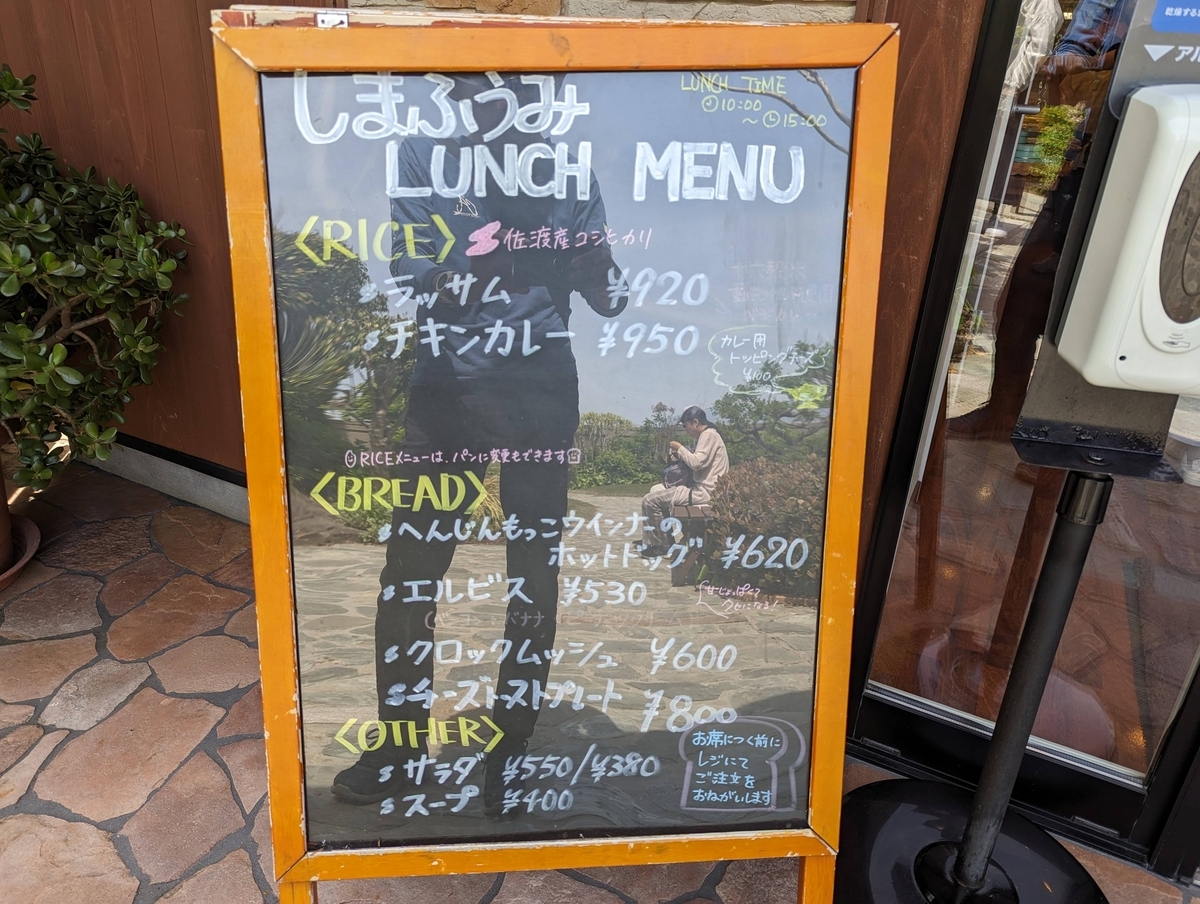 しまふうみ
LUNCH MENU
LUNCH TIME
10:00
〜15:00
〈RICE〉 佐渡産コシヒカリ
ラッサム ¥920
チキンカレー ¥950
カレー用
トッピングチーズ
¥100
RICEメニューは、パンに変更もできます
〈BREAD〉
へんじんもっこウインナーの
ホットドッグ ¥620
エルビス ¥530
甘じょっぱくて
クセになる!
バナナ
クロックムッシュ ¥600
チーズトーストプレート ¥800
〈OTHER〉
サラダ ¥550/¥380
スープ ¥400
お席につく前に
レジにて
ご注文を
おねがいします
乾燥する
▽アル